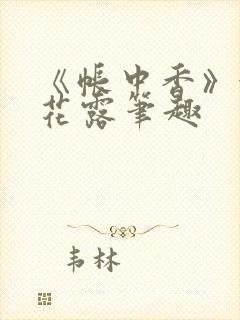 《帐中香》
花露笔趣
韦林